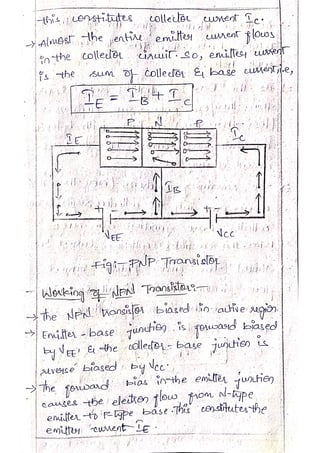 this constitutes collector current Ic.
→ Almost the entire emitter current flows
in the collector circuit. So, emitter current
is the sum of collector & base current, i.e,
IE = IB + Ic
P N P
IE Ic
IB
+ - + -
VEE VCC
Fig:- PNP Transistor
Working of NPN Transistor:-
→ The NPN transistor biased in active region
→ Emitter-base junction is forward biased
by VEE & the collector-base junction is
reverse biased by Vcc.
→ The forward bias in the emitter junction
causes the electron flow from N-type
emitter to P-type base. This constitutes the
emitter current IE.